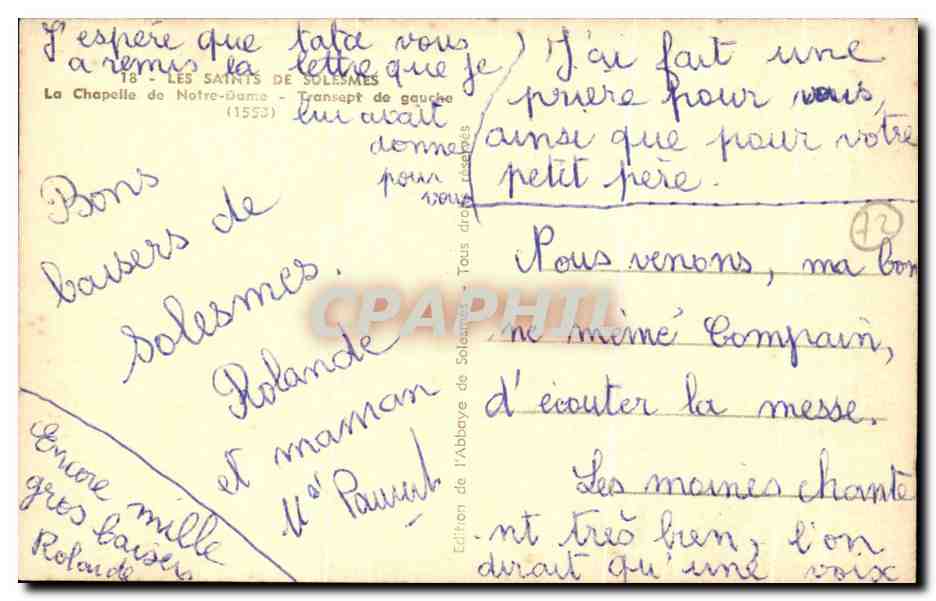 J'espère que tata vous
a remis la lettre que je
lui avait
donner
pour
vous
18 - LES SAINTS DE SOLESMES
La Chapelle de Notre-Dame - Transept de gauche
(1553)
Bons
baisers de
Solesmes.
Rolande
et maman
Encore mille
gros baisers
Rolande
Edition de l'Abbaye de Solesmes - Tous droits réservés
J'ai fait une
prière pour vous,
ainsi que pour votre
petit père.
72
Nous venons, ma bon
ne mémé Compain,
d'écouter la messe.
Les moines chante
nt très bien, l'on
dirait qu'une voix
CPAPHIL